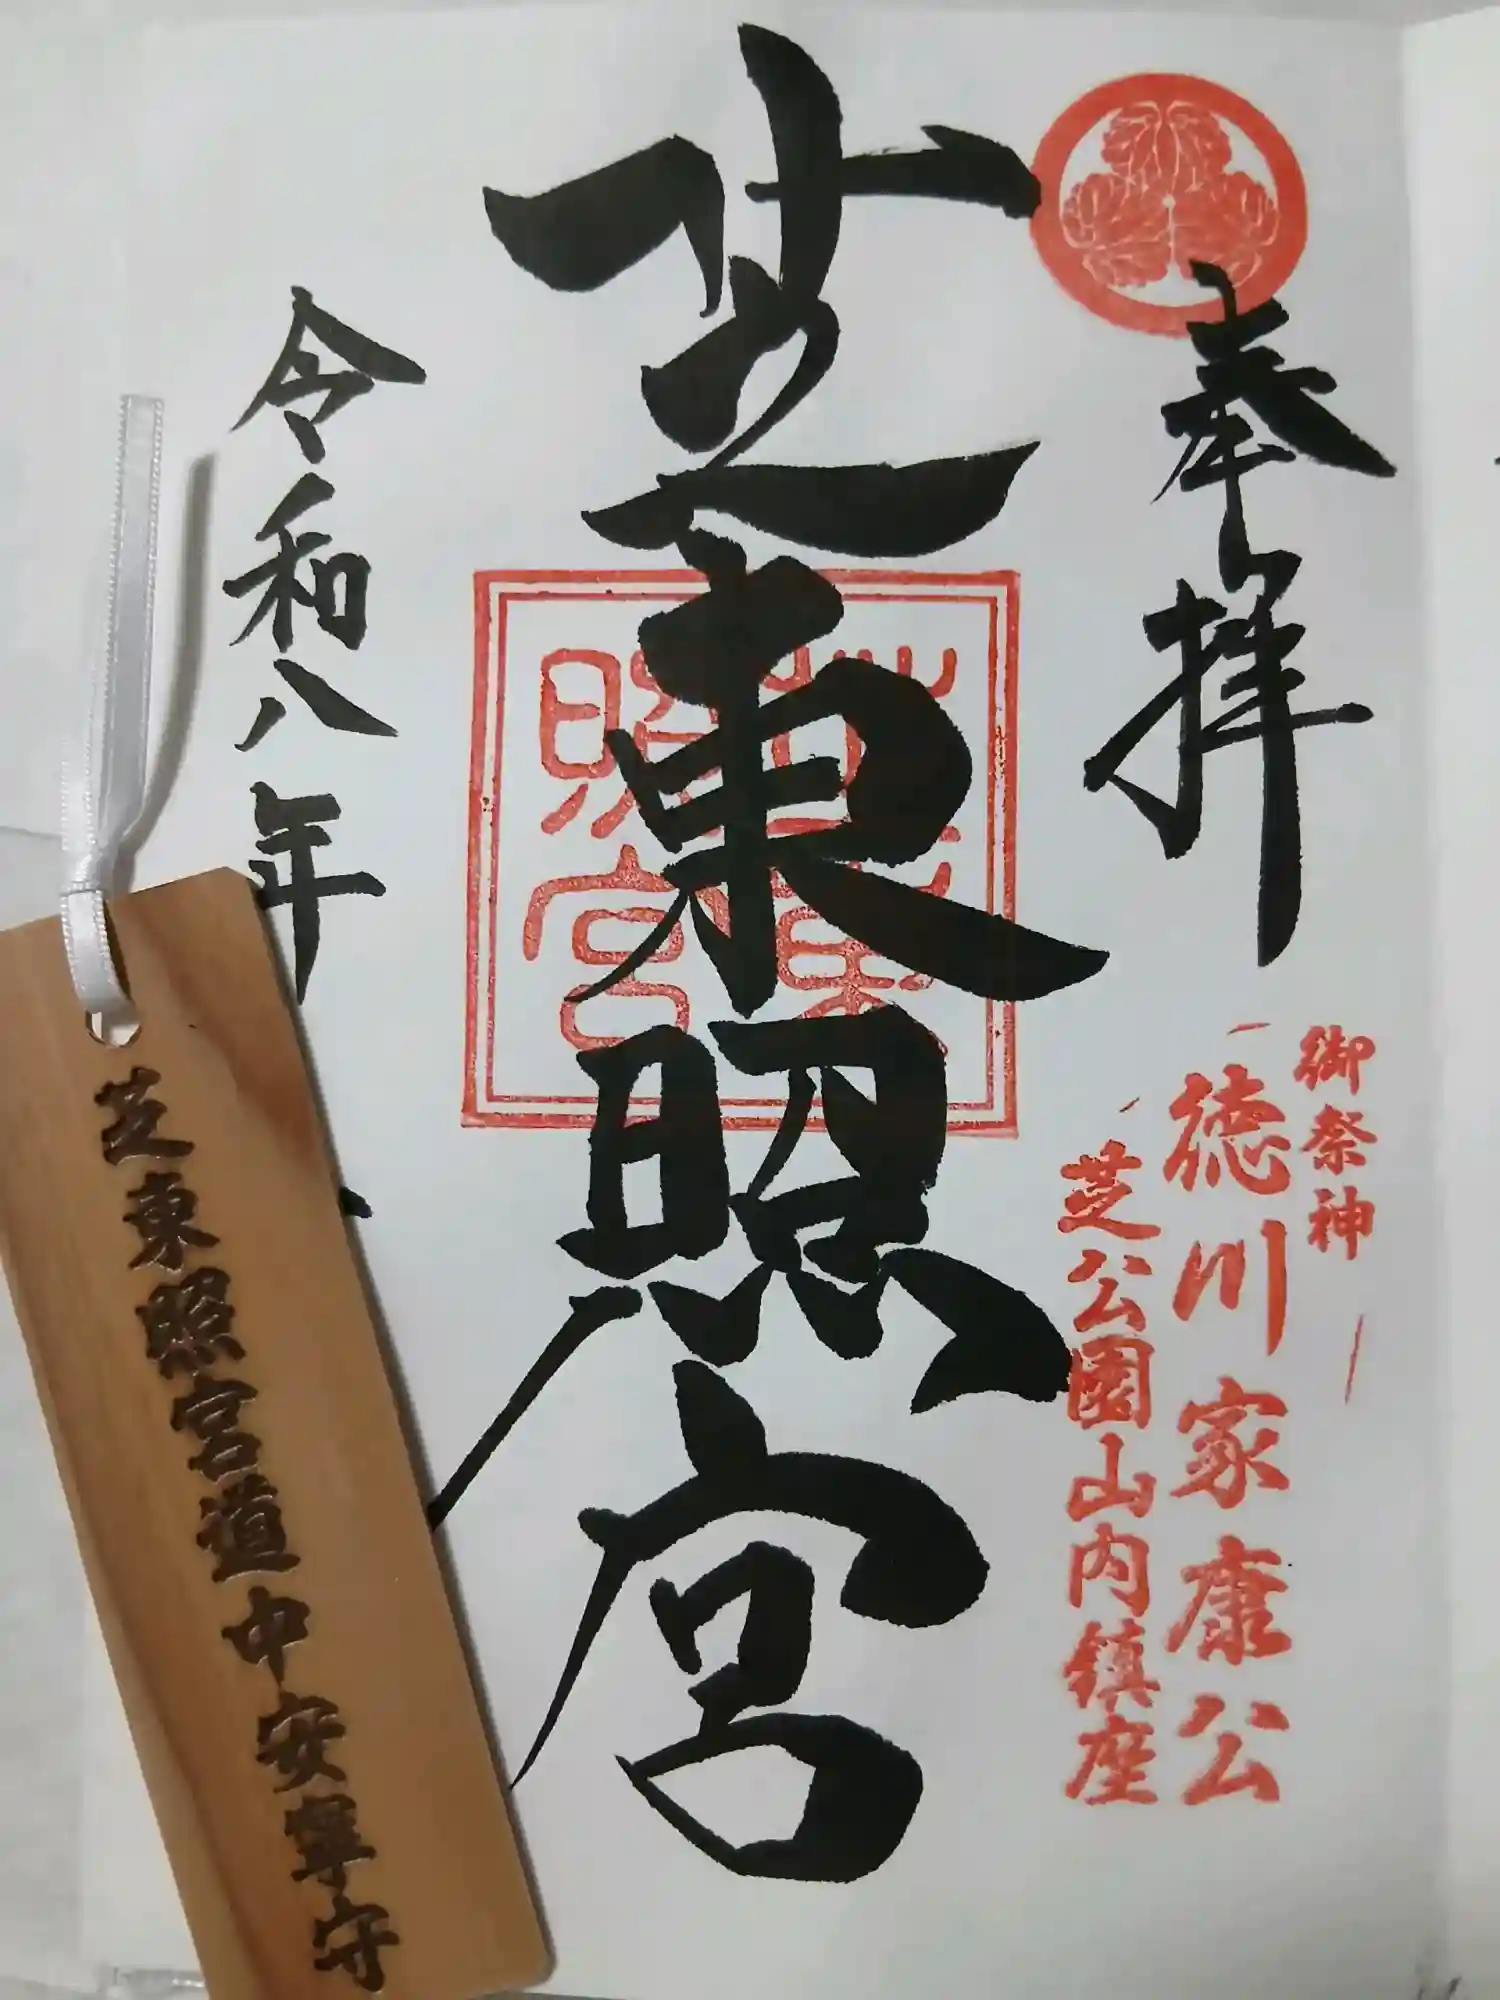 奉拝
御祭神
徳川家康公
芝公園山内鎮座
芝東照宮
芝東
照宮
令和八年
芝東照宮道中安寧守